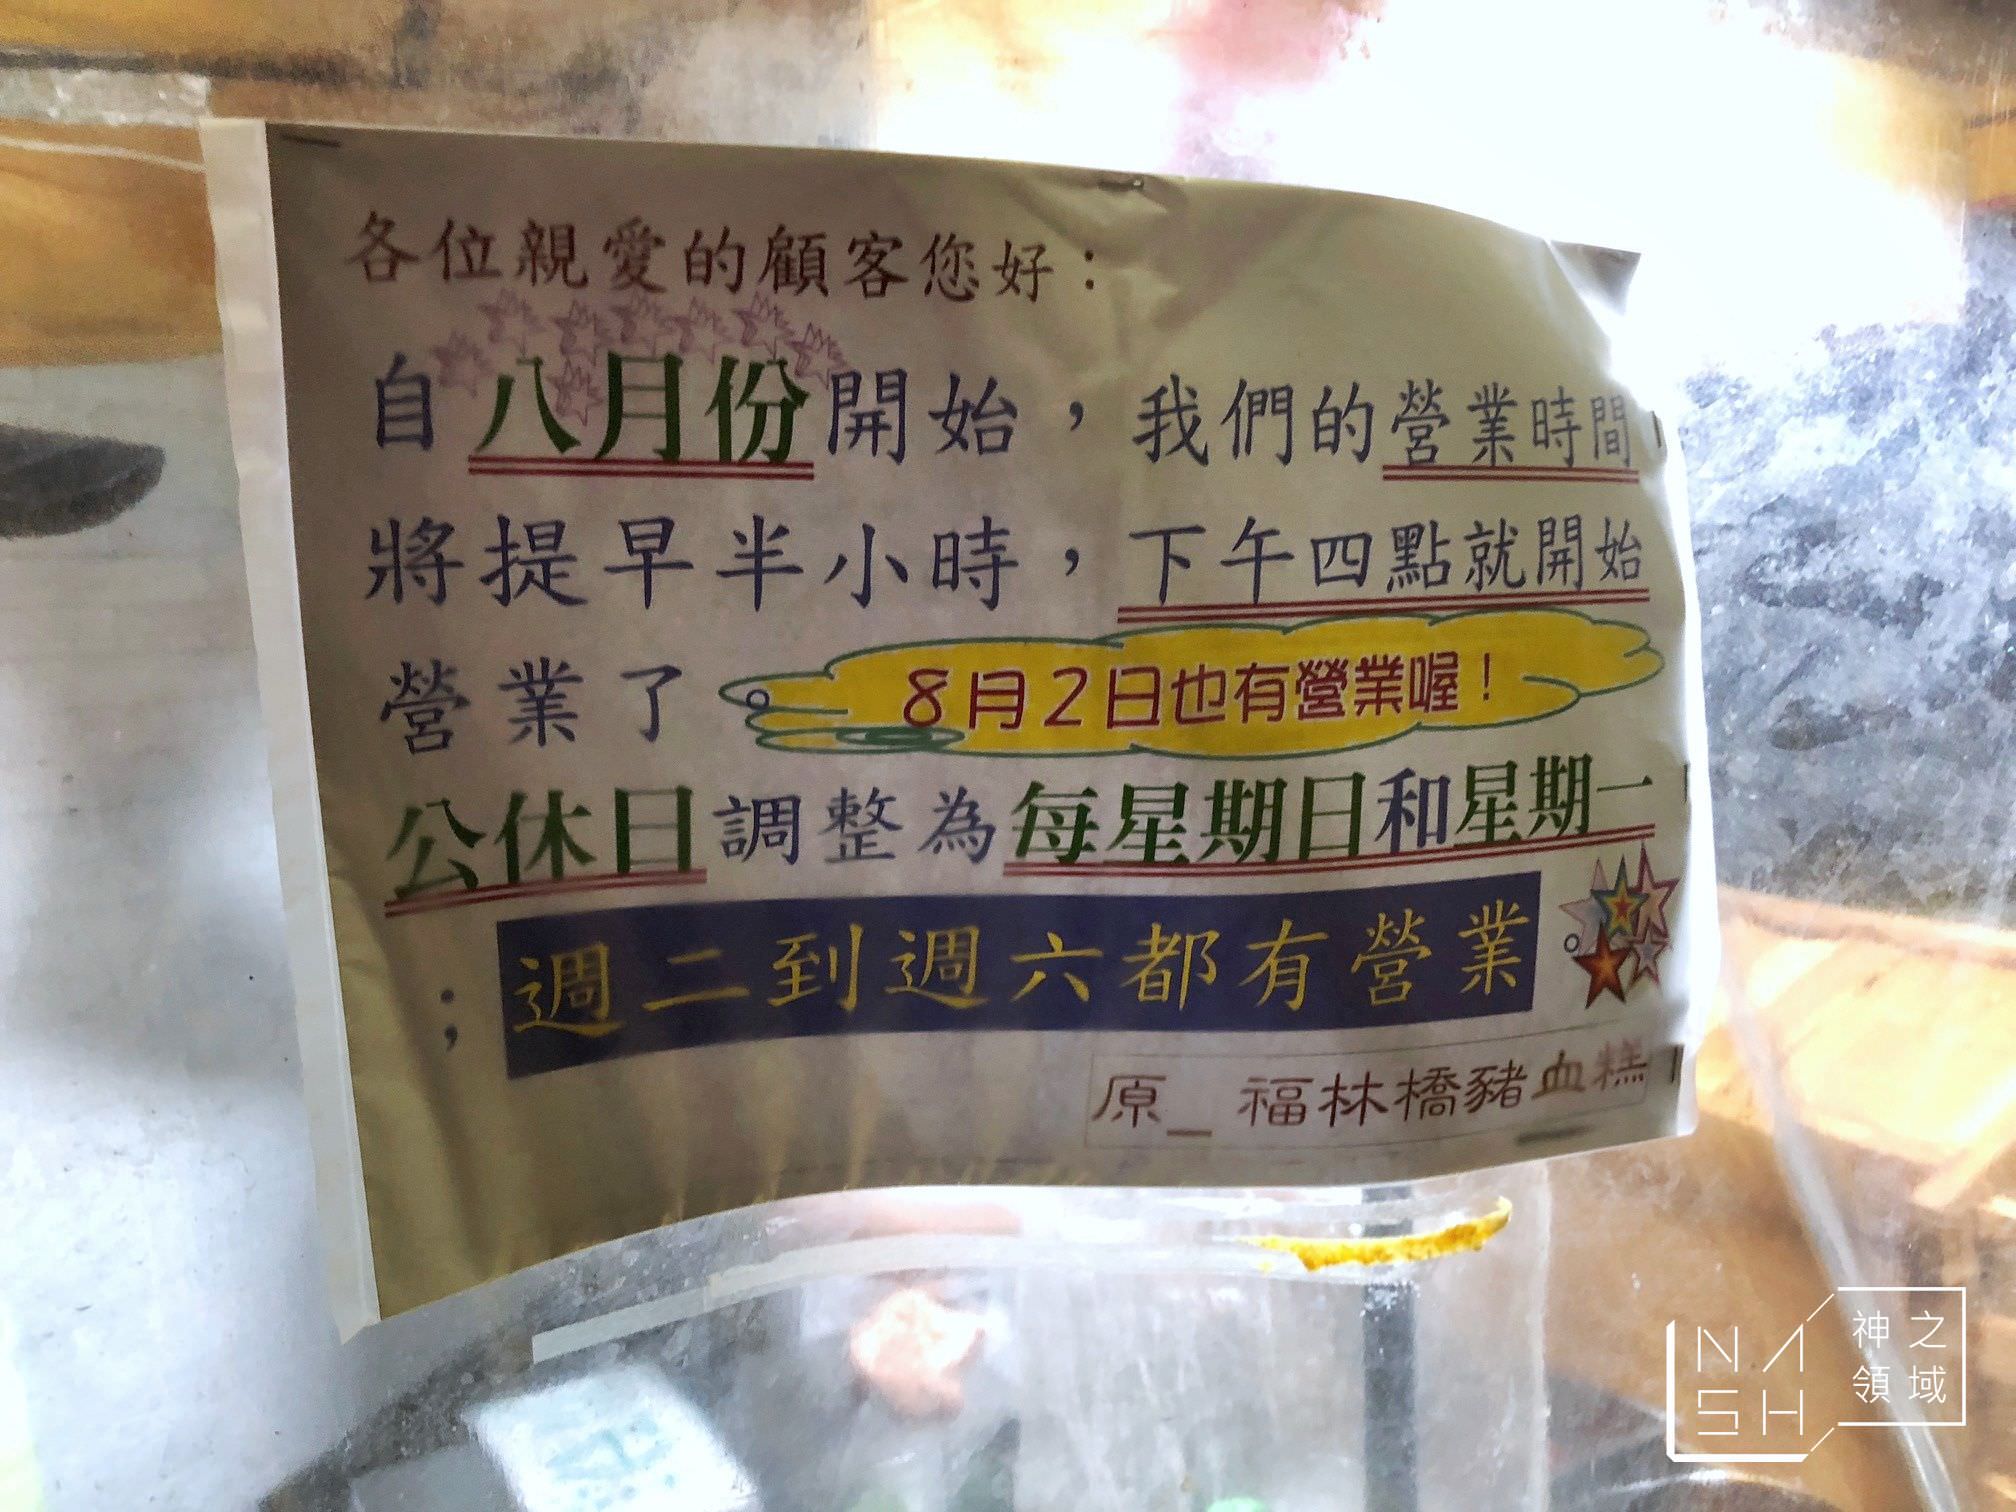 各位親愛的顧客您好：
自八月份開始，我們的營業時間
將提早半小時，下午四點就開始
營業了
8月2日也有營業喔！
公休日調整為每星期日和星期一
；週二到週六都有營業
原_ 福林橋豬血糕
NASH
神之領域